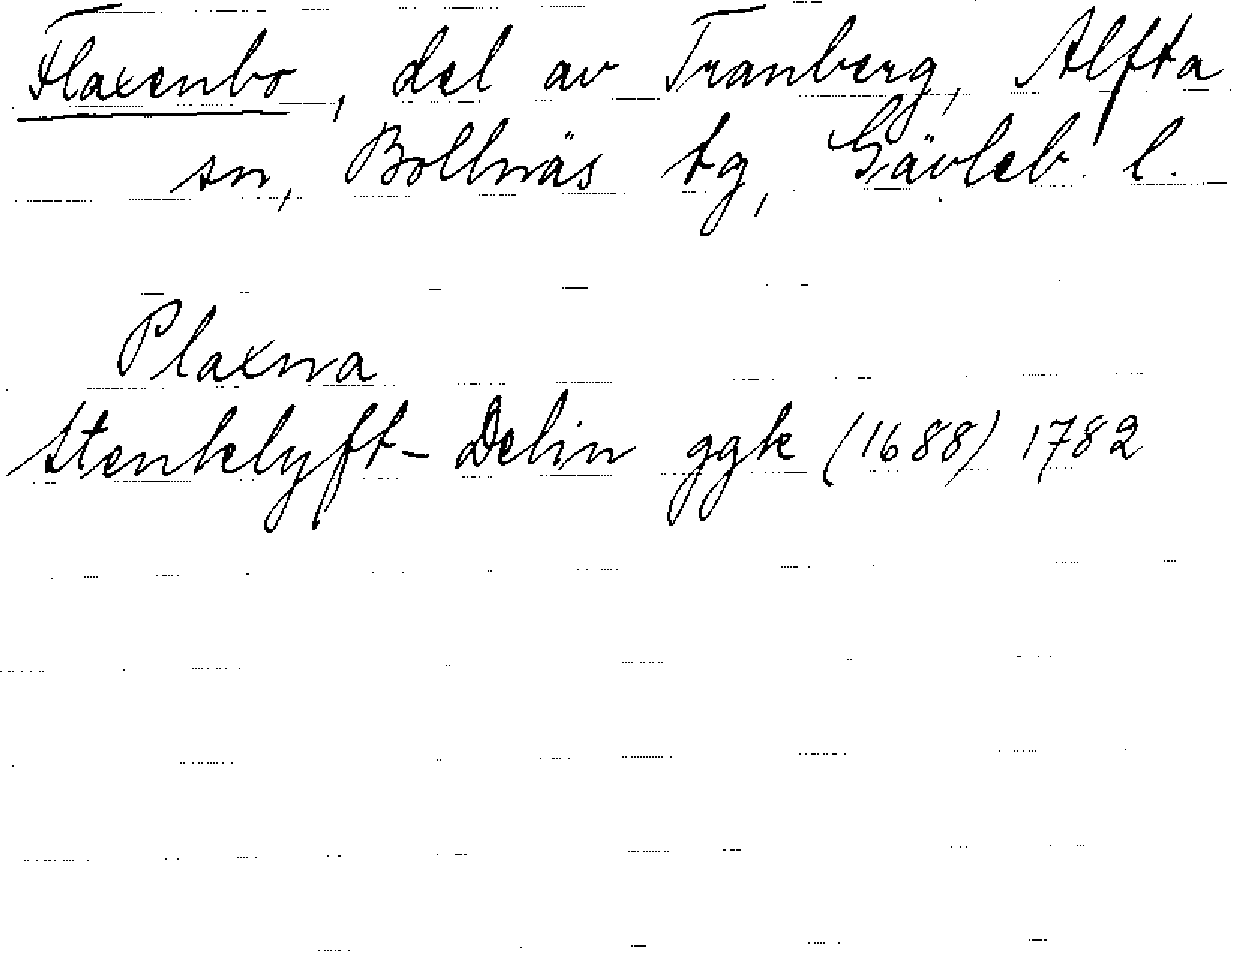 Flaxenbo, del av Tranberg, Alfta
sn, Bollnäs tg, Gävleb. l.
Plaxna
Stenklyft-Delin ggk (1688) 1782